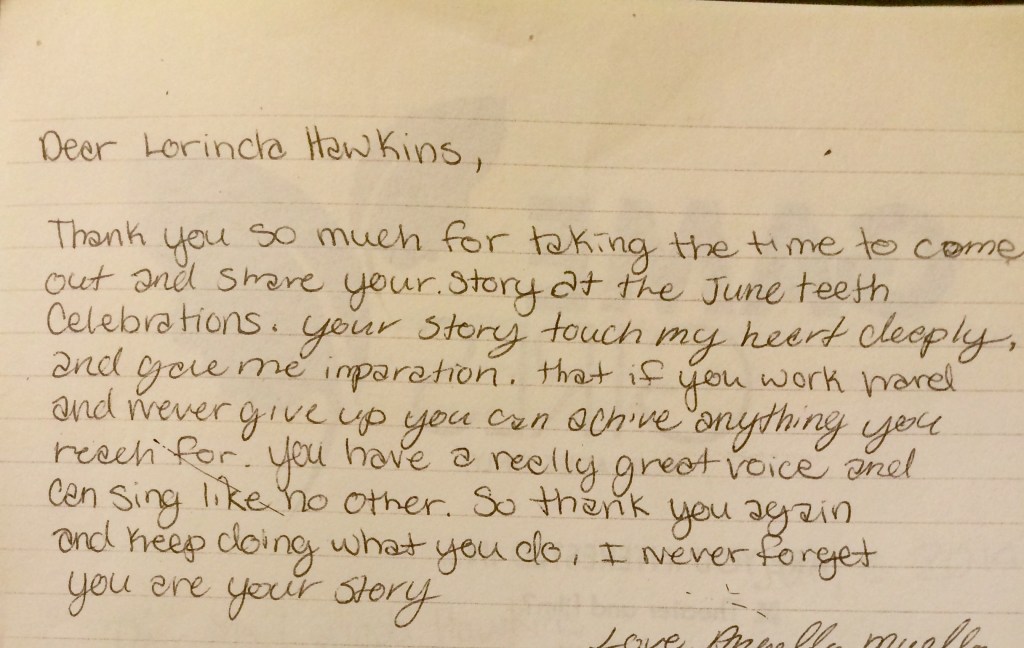 Dear Lorinda Hawkins,
Thank you so much for taking the time to come
out and share your. Story at the June teeth
Celebrations. your story touch my heart deeply,
and gave me inparation. that if you work hard
and never give up you can achive anything you
reach for. you have a really great voice and
can sing like no other. So thank you again
and keep doing what you do, I never forget
you are your story
Love,